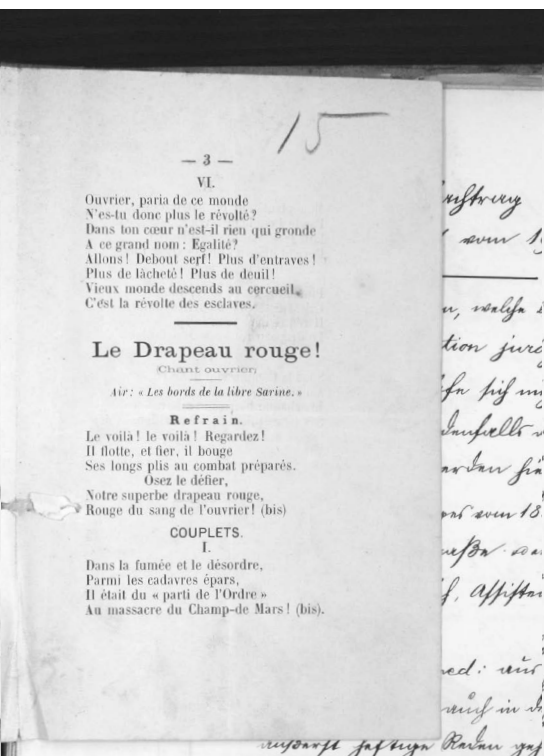 15
— 3 —
VI.
Ouvrier, paria de ce monde
N'es-tu donc plus le révolté?
Dans ton cœur n'est-il rien qui gronde
A ce grand nom : Egalité?
Allons! Debout serf! Plus d'entraves!
Plus de lâcheté! Plus de deuil!
Vieux monde descends au cercueil.
C'est la révolte des esclaves.
Le Drapeau rouge!
(Chant ouvrier)
Air: « Les bords de la libre Sarine. »
Refrain.
Le voilà! le voilà! Regardez!
Il flotte, et fier, il bouge
Ses longs plis au combat préparés.
Osez le défier,
Notre superbe drapeau rouge,
Rouge du sang de l'ouvrier! (bis)
COUPLETS.
I.
Dans la fumée et le désordre,
Parmi les cadavres épars,
Il était du « parti de l'Ordre »
Au massacre du Champ-de Mars! (bis).
vom
welche
sich
hie
vom 18
aus
auch in
äußerst heftige Reden